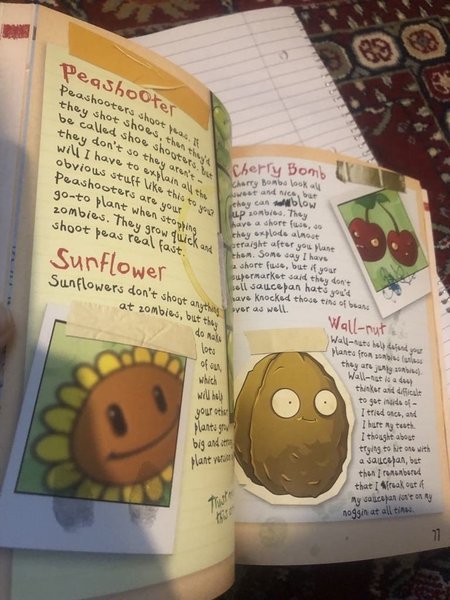 Peashooter
Peashooters shoot peas. If
they shot shoes, then they'd
be called shoe shooters. But
they don't so they aren't.
will I have to explain all the
obvious stuff like this to you?
Peashooters are your
go-to plant when stopping
zombies. They grow quick and
shoot peas real fast.
Sunflower
Sunflowers don't shoot anything
at zombies, but they
do make
lots
of sun,
which
will help
your other
plants grow
big and
plant
this
Cherry Bomb
Cherry Bombs look all
sweet and nice, but
they can blow
up zombies. They
have a short fuse, so
they explode almost
straight after you plant
them. Some say I have
a short fuse, but if your
supermarket said they didn't
sell saucepan hats you'd
have knocked those tins of beans
over as well.
Wall-nut
Wall-nuts help defend your
plants from zombies (unless
they are jumpy zombies).
Wall-nut is a deep
thinker and difficult
to get inside of –
I tried once, and
I hurt my teeth.
I thought about
trying to hit one with
a saucepan, but
then I remembered
that I freak out if
my saucepan isn't on my
noggin at all times.
77